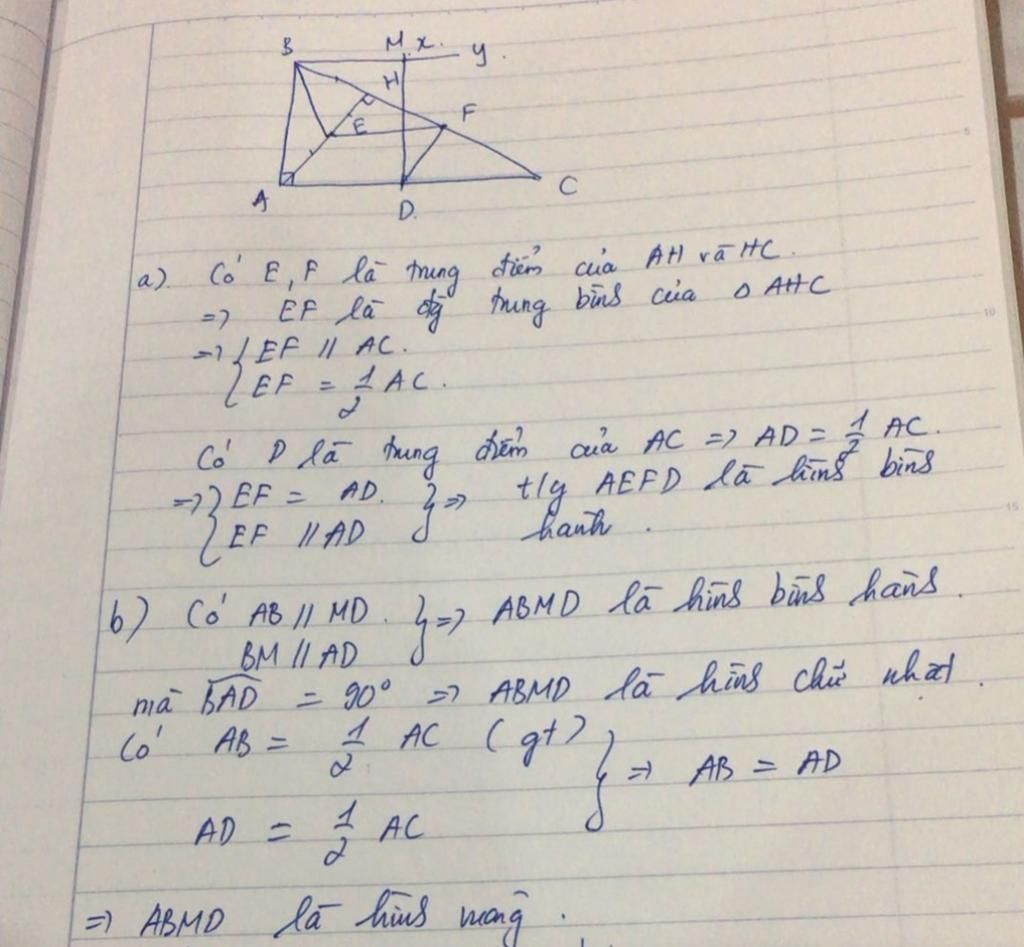 B M x y.
H
E F
A D. C
a). Có E, F là trung điểm của AH và HC.
=> EF là đg trung bình của Δ AHC
=> { EF // AC.
EF = 1/2 AC.
Có D là trung điểm của AC => AD = 1/2 AC.
=> { EF = AD. } => t/g AEFD là hình bình
EF // AD hành.
b) Có AB // MD. } => ABMD là hình bình hành.
BM // AD
mà BAD = 90° => ABMD là hình chữ nhật.
Có AB = 1/2 AC (gt) } => AB = AD
AD = 1/2 AC
=> ABMD là hình vuông.